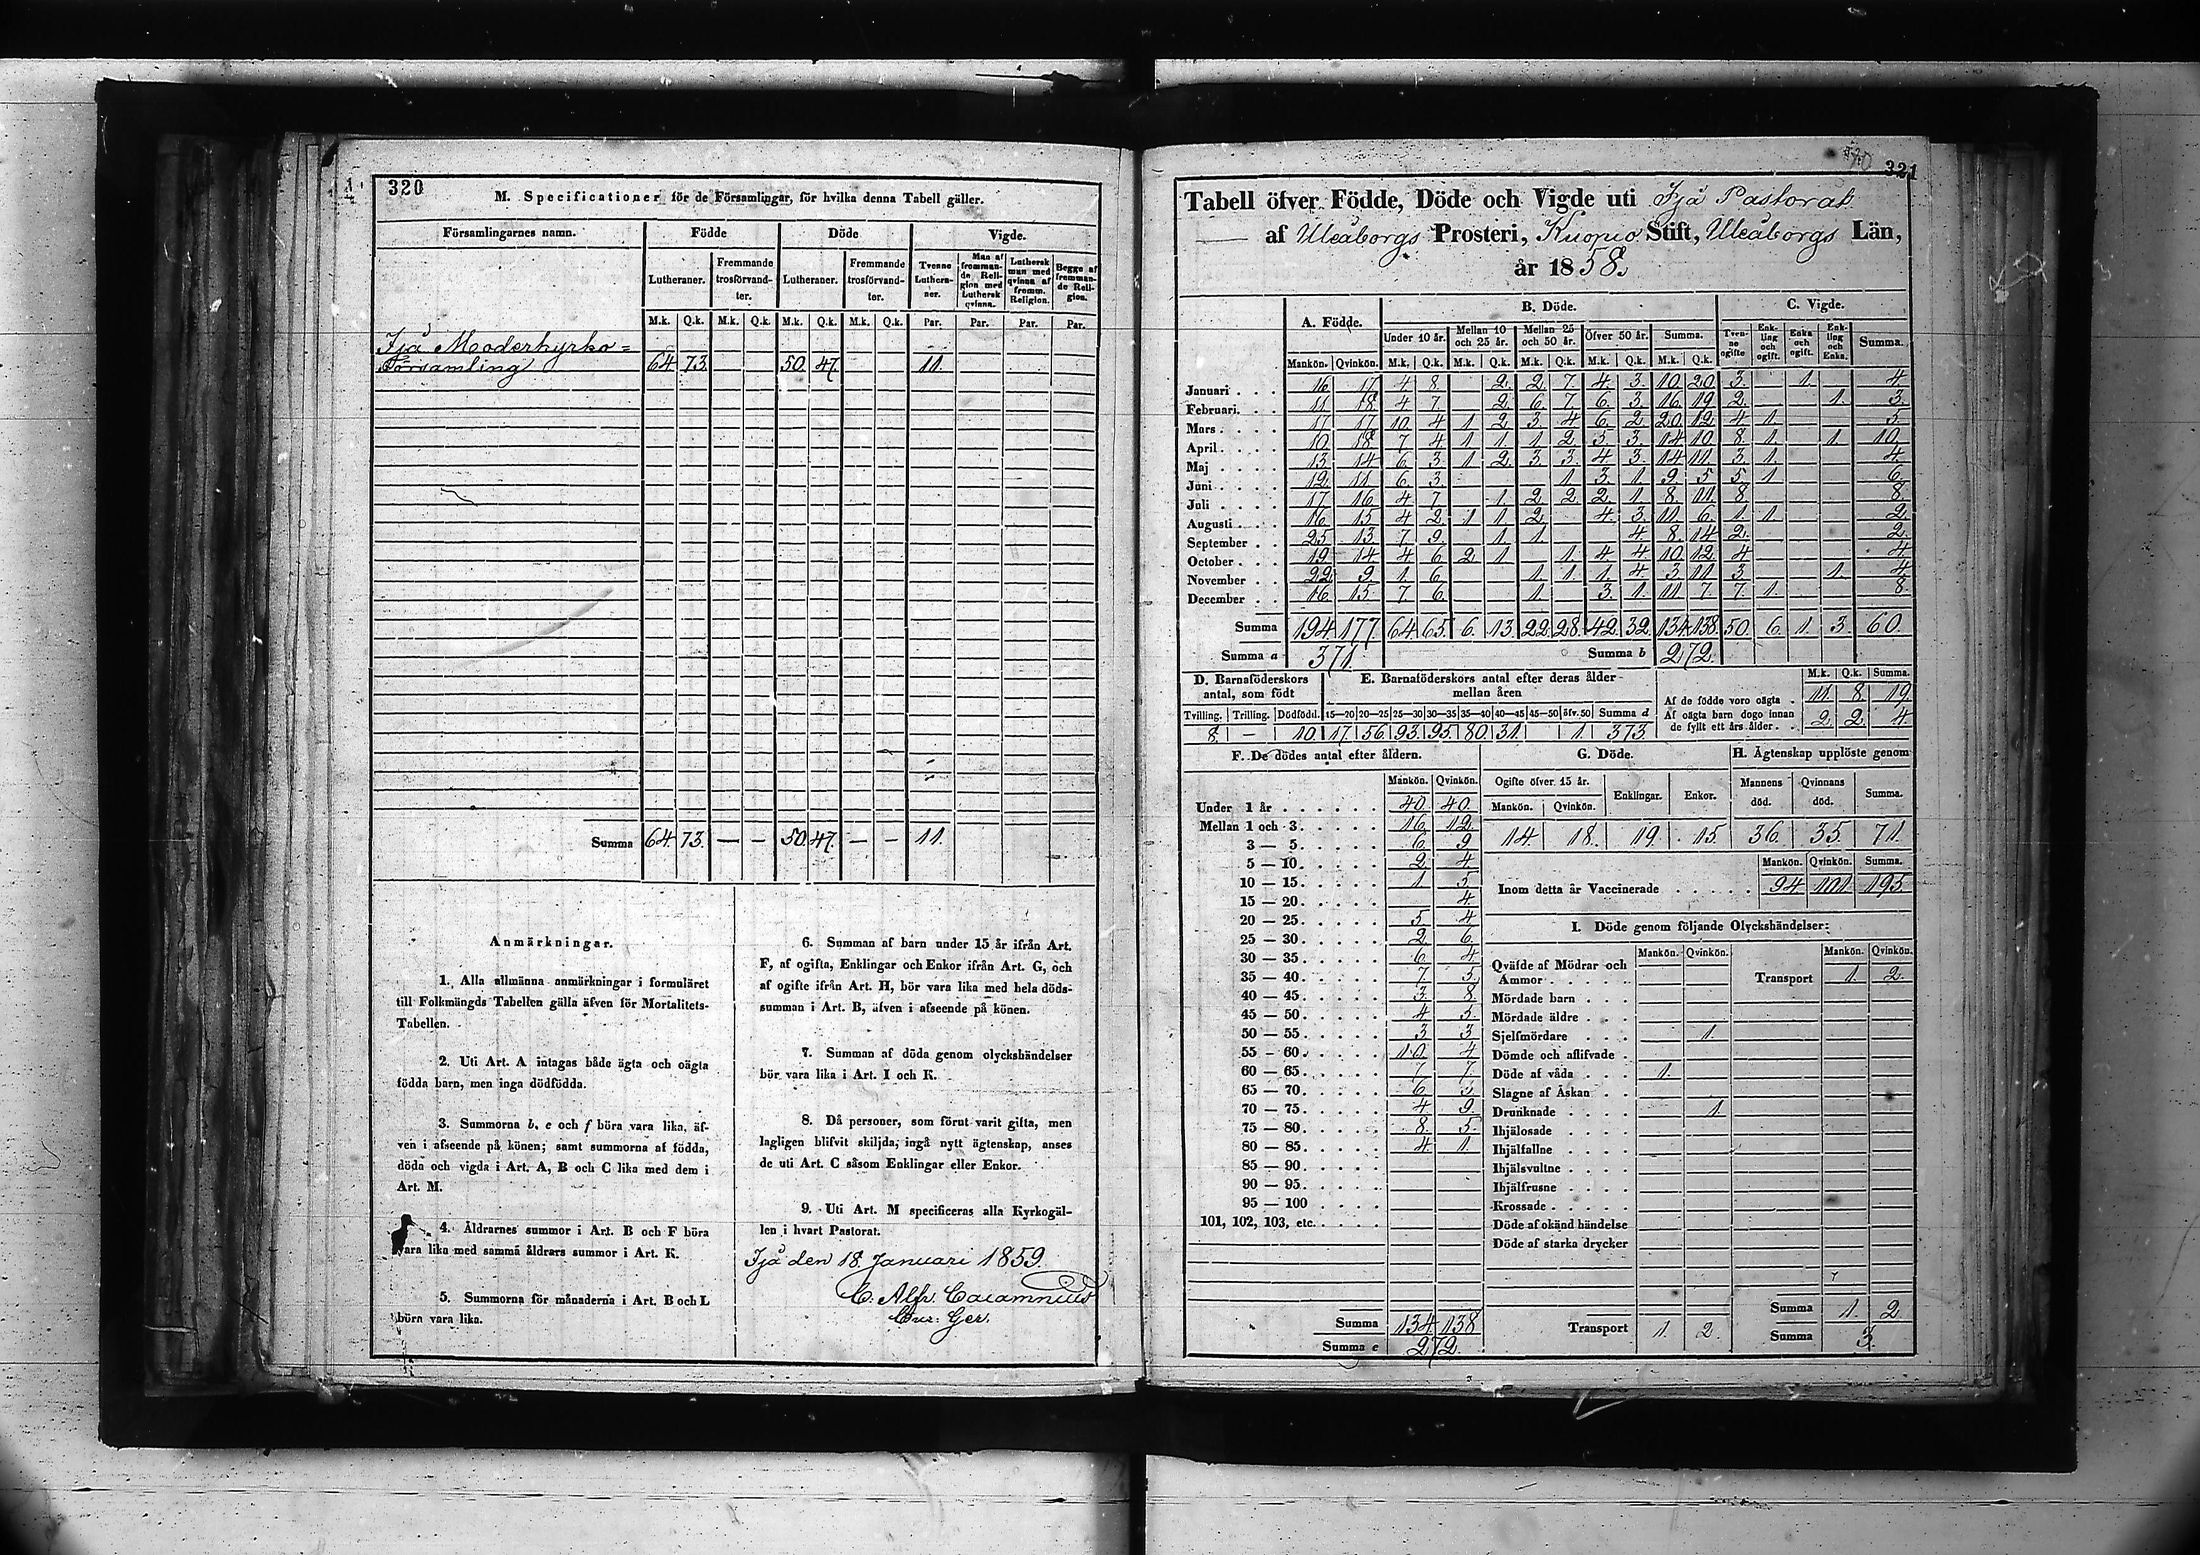 320
M. Specificationer för de Församlingar, för hvilka denna Tabell gäller.
Församlingarnes namn. Födde Döde Vigde.
Lutheraner. Fremmande trosförvand-ter. Lutheraner. Fremmande trosförvand-ter. Tvenne Luthera-ner. Man af fremman-de Reli-gion med Luthersk qvinna. Luthersk man med qvinna af fremm. Religion. Begge af fremman-de Reli-gion.
M.k. Q.k. M.k. Q.k. M.k. Q.k. M.k. Q.k. Par. Par. Par. Par.
Ijå Moderkyrko=
Församling 64 73. 50. 47. 11.
Summa 64. 73. — — 50. 47. — — 11.
Anmärkningar.
1. Alla allmänna anmärkningar i formuläret
till Folkmängds Tabellen gälla äfven för Mortalitets-
Tabellen.
2. Uti Art. A intagas både ägta och oägta
födda barn, men inga dödfödda.
3. Summorna b, e och f böra vara lika, äf-
ven i afseende på könen; samt summorna af födda,
döda och vigda i Art. A, B och C lika med dem i
Art. M.
4. Åldrarnes summor i Art. B och F böra
vara lika med samma åldrars summor i Art. K.
5. Summorna för månaderna i Art. B och L
böra vara lika.
6. Summan af barn under 15 år ifrån Art.
F, af ogifta, Enklingar och Enkor ifrån Art. G, och
af ogifte ifrån Art. H, bör vara lika med hela döds-
summan i Art. B, äfven i afseende på könen.
7. Summan af döda genom olyckshändelser
bör vara lika i Art. I och K.
8. Då personer, som förut varit gifta, men
lagligen blifvit skiljda, ingå nytt ägtenskap, anses
de uti Art. C såsom Enklingar eller Enkor.
9. Uti Art. M specificeras alla Kyrkogäl-
len i hvart Pastorat.
Ijå den 18 Januari 1859.
C. Alfr. Cajamnius
Cur: Ger.
321
Tabell öfver Födde, Döde och Vigde uti Ijå Pastorat
af Uleåborgs Prosteri, Kuopio Stift, Uleåborgs Län,
år 1858.
A. Födde. B. Döde. C. Vigde.
Under 10 år. Mellan 10 och 25 år. Mellan 25 och 50 år. Öfver 50 år. Summa. Tven-ne ogifte Enk-ling och ogift. Enka och ogift. Enk-ling och Enka. Summa.
Mankön. Qvinkön. M.k. Q.k. M.k. Q.k. M.k. Q.k. M.k. Q.k. M.k. Q.k.
Januari 16. 17 4 8. 2. 2 7. 4. 3. 10. 20 3. 1. 4.
Februari. 11 18. 4 7. 2. 6. 7. 6. 3. 16. 19 2. 1. 3.
Mars 17 17 10. 4 1 2 3. 4 6. 2 20. 12 4. 1. 5.
April 10 18 7 4 1 1 1 2 5 3. 14 10 8. 1. 1. 10.
Maj 13 14 6 3 1 2. 3 3 4 3. 14 11 3. 1. 4.
Juni 12 11 6. 3. 1 3. 1. 9. 5 5. 1 6.
Juli 17 16 4 7 1 2 2. 2. 1 8. 11. 8 8.
Augusti 16 15 4 2. 1 1 2. 4. 3. 11. 6. 1. 1. 2.
September 25 13 7 9. 1 1. 4. 8. 14 2. 2.
October 19 14 4 6 2 1 1. 4 4. 10 12. 4 4
November 22 9. 1. 6. 1 1. 1. 4. 3. 11 3 1. 4.
December 16. 15. 7. 6. 1. 3. 1. 11. 7. 7. 1. 8.
Summa 194. 177. 64. 65. 6. 13. 22. 28. 42. 32. 134. 138. 50. 6. 1. 3. 60.
Summa a 371. Summa b 272.
D. Barnaföderskors antal, som födt
E. Barnaföderskors antal efter deras ålder mellan åren
Tvilling. Trilling. Dödfödd. 15—20 20—25 25—30 30—35 35—40 40—45 45—50 öfv. 50 Summa d
8. — 10. 17. 56. 93. 95. 80. 31. 1 373
M.k. Q.k. Summa.
Af de födde voro oägta . 11. 8. 19
Af oägta barn dogo innan
de fyllt ett års ålder . . 2. 2. 4.
F. De dödes antal efter åldern.
Mankön. Qvinkön.
Under 1 år 40. 40.
Mellan 1 och 3. 16. 12.
3 — 5. 6 9
5 — 10. 2 4.
10 — 15. 1 5.
15 — 20. 4.
20 — 25. 5. 4
25 — 30. 2. 6.
30 — 35. 6 4
35 — 40. 7. 5.
40 — 45. 3. 8.
45 — 50. 4 5.
50 — 55. 3 3
55 - 60. 10. 4
60 — 65. 7 7.
65 — 70. 6 3.
70 — 75. 4 9.
75 — 80. 8. 5.
80 — 85. 4. 1.
85 — 90.
90 — 95.
95 — 100
101, 102, 103, etc.
Summa 134 138
Summa e 272.
G. Döde.
Ogifte öfver 15 år. Enklingar. Enkor.
Mankön. Qvinkön.
14. 18. 19. 15.
H. Ägtenskap upplöste genom
Mannens död. Qvinnans död. Summa.
36. 35. 71.
Mankön. Qvinkön. Summa.
Inom detta år Vaccinerade 94 101 195
I. Döde genom följande Olyckshändelser:
Mankön. Qvinkön. Mankön. Qvinkön.
Qväfde af Mödrar och
Ammor Transport 1. 2.
Mördade barn
Mördade äldre
Sjelfmördare 1.
Dömde och aflifvade
Döde af våda 1.
Slagne af Åskan
Drunknade 1.
Ihjälosade
Ihjälfallne
Ihjälsvultne
Ihjälfrusne
Krossade
Döde af okänd händelse
Döde af starka drycker
Summa 1. 2.
Transport 1. 2. Summa 3.